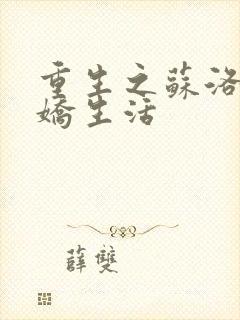 重生之蘇洛
嬌生活
薛雙